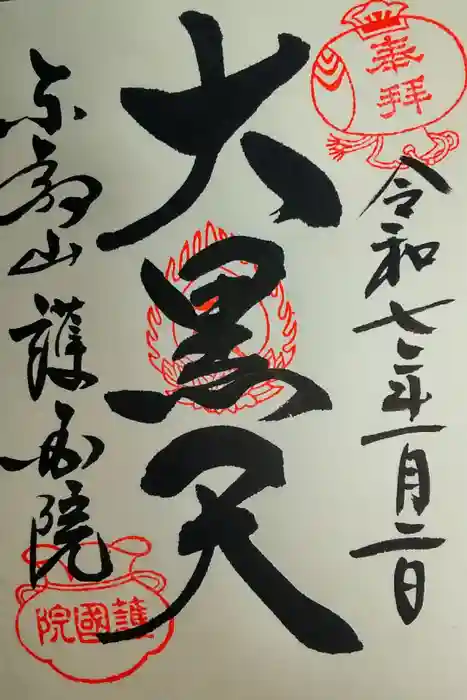 奉拝
令和七年一月二日
大黒天
東叡山護国院
院國護